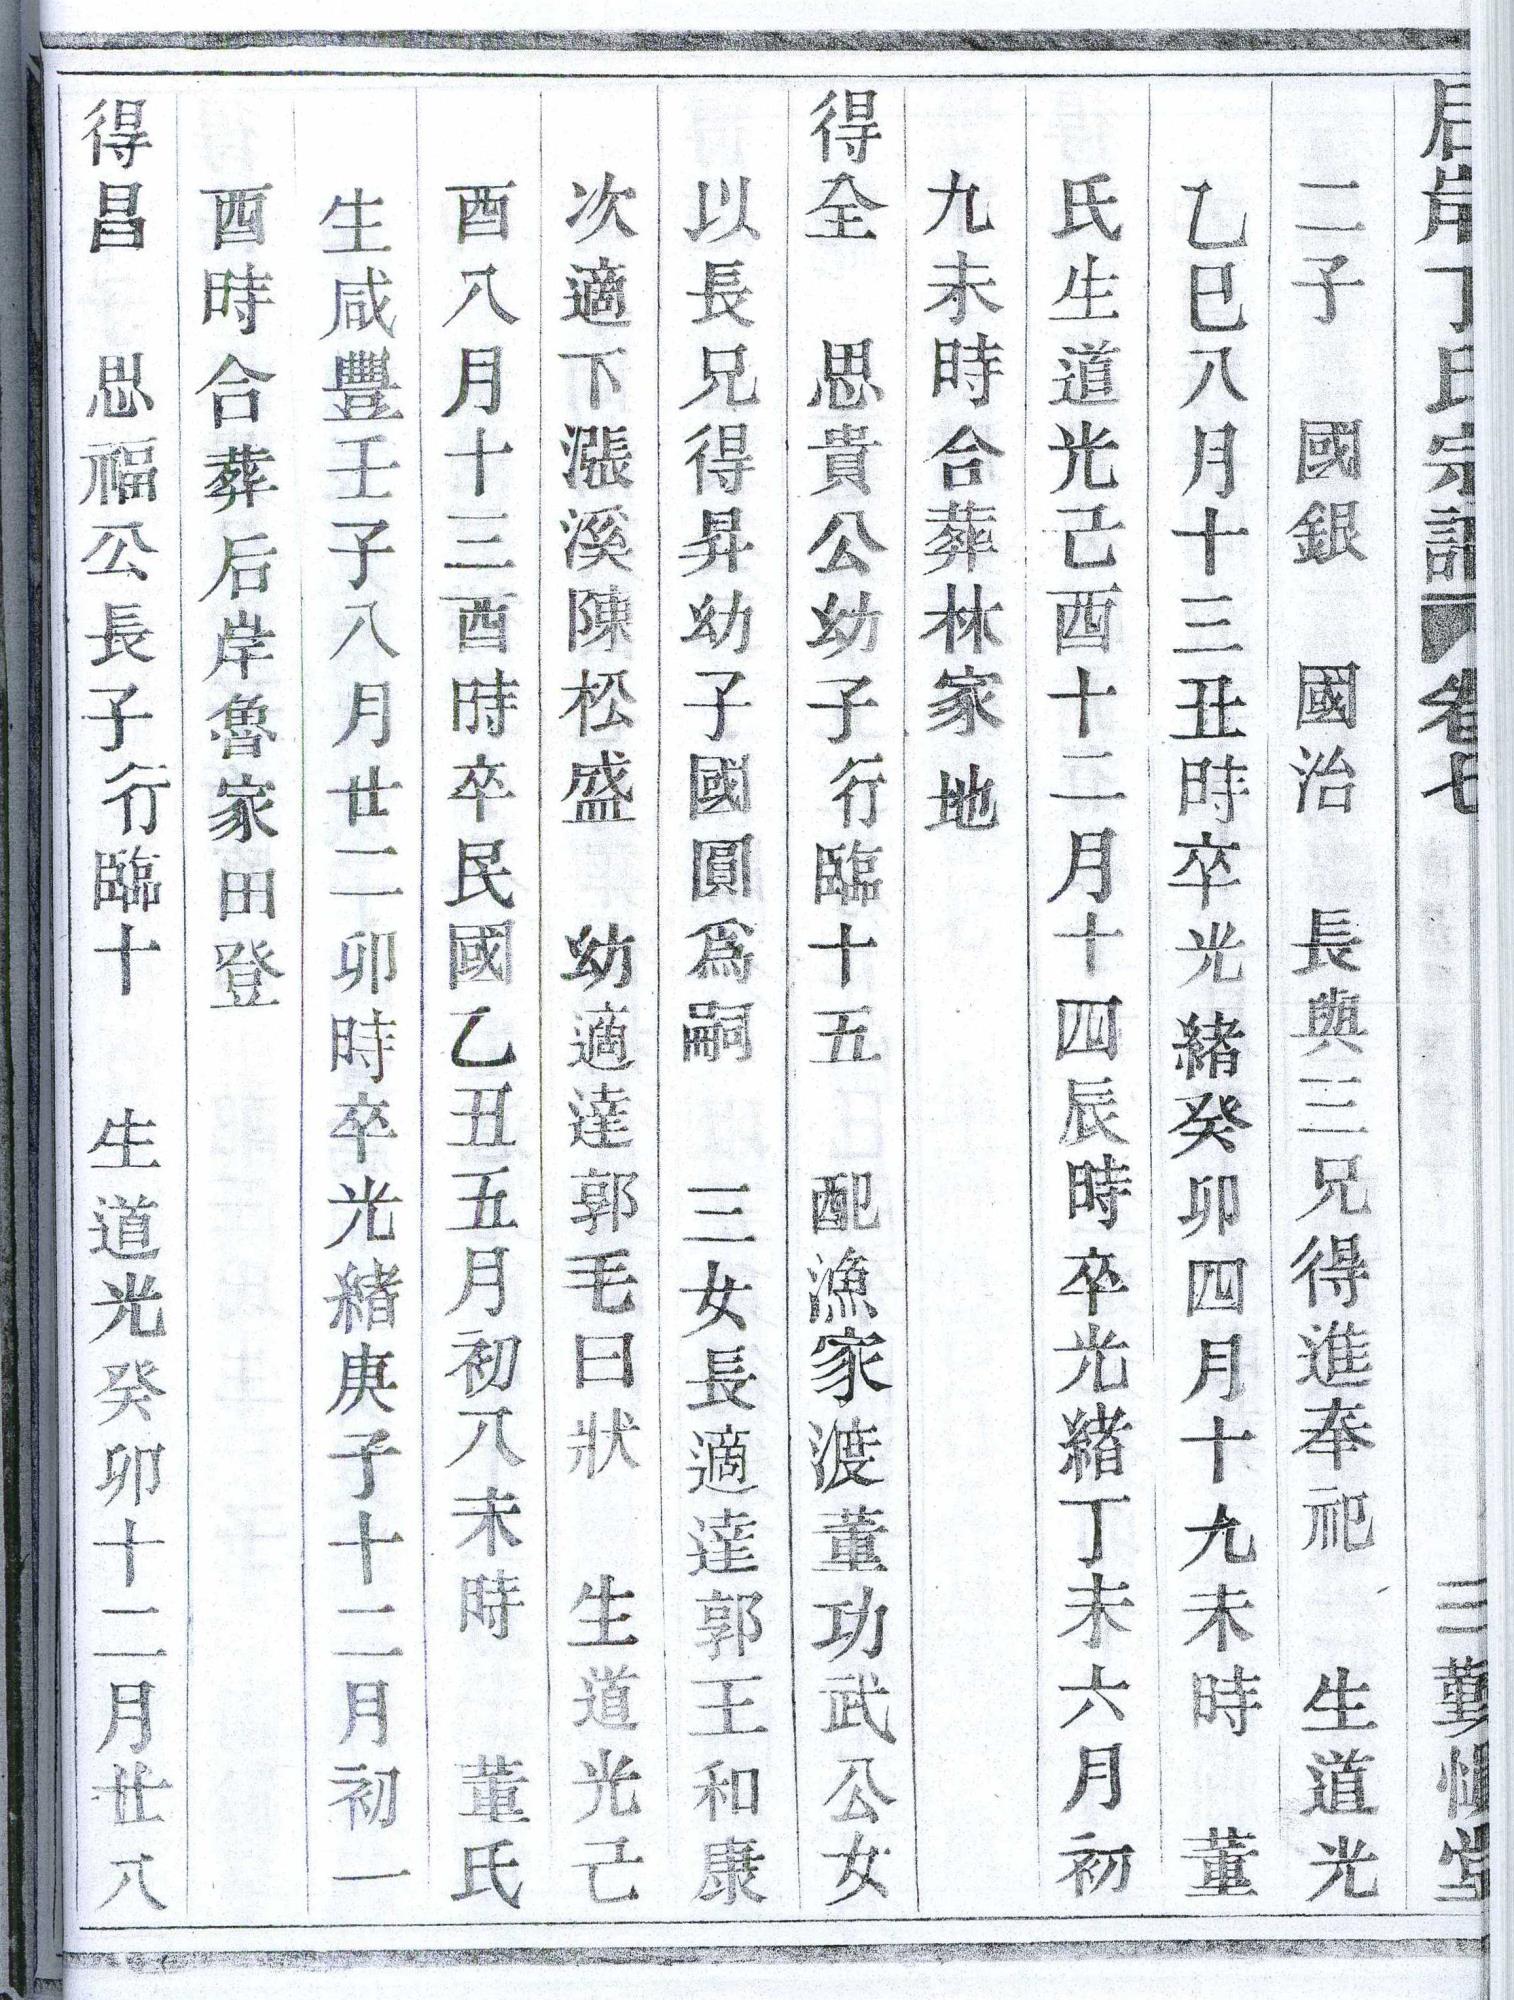 后岸丁氏宗譜 卷七 三 勤慎堂
二子 國銀 國治 長與三兄得進奉祀 生道光
乙巳八月十三丑時卒光緒癸卯四月十九未時 董
氏生道光己酉十二月十四辰時卒光緒丁未六月初
九未時合葬林家地
得全 思貴公幼子行臨十五 配漁家渡董功武公女
以長兄得昇幼子國圓爲嗣 三女長適達郭王和康
次適下漲溪陳松盛 幼適達郭毛曰狀 生道光己
酉八月十三酉時卒民國乙丑五月初八未時 董氏
生咸豐壬子八月廿二卯時卒光緒庚子十二月初一
酉時合葬后岸魯家田登
得昌 思福公長子行臨十 生道光癸卯十二月廿八